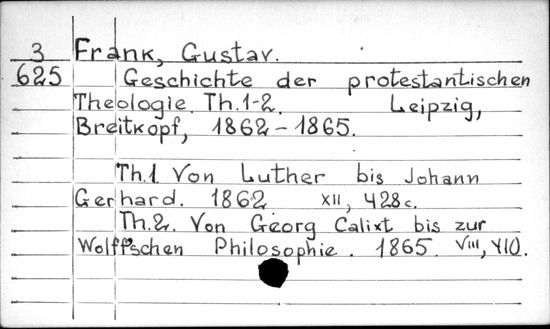 3 Frank, Gustav.
625 Geschichte der protestantischen
Theologie. Th.1-2. Leipzig,
Breitkopf, 1862-1865.
Th.1. Von Luther bis Johann
Gerhard. 1862 XII, 428 c.
Th.2. Von Georg Calixt bis zur
Wolff'schen Philosophie. 1865. VIII, 410.